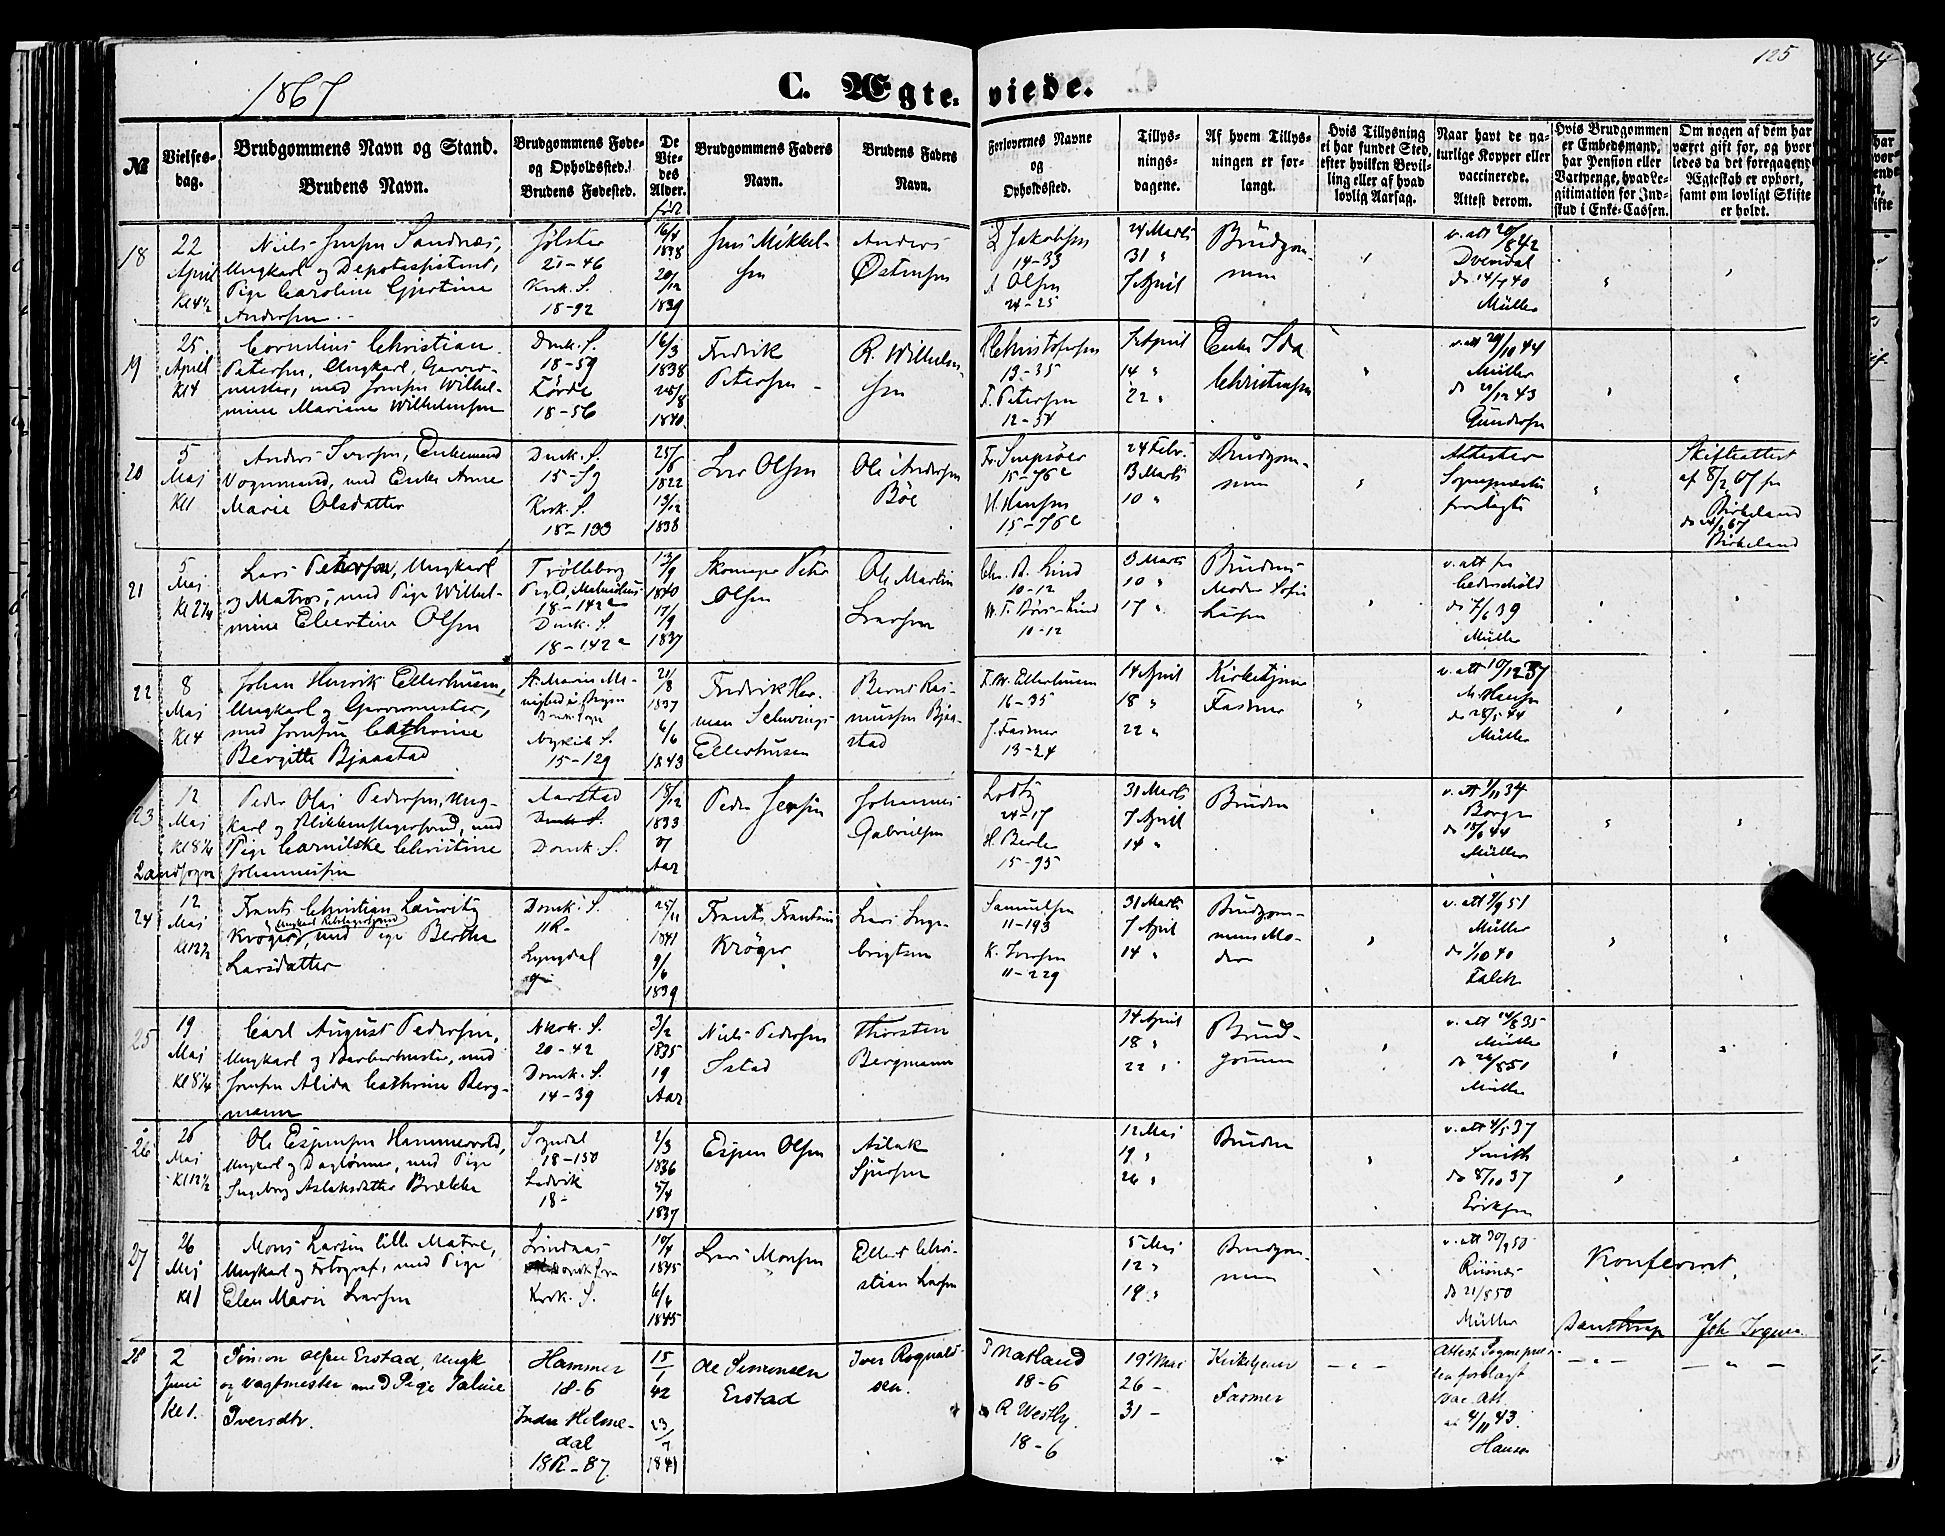 1867
C. Ægte-
viede.
125
№
Vielses-
dag.
Brudgommens Navn og Stand.
Brudens Navn.
Brudgommens Føde-
og Opholdssted.
Brudens Fødested.
De
Vie-
des
Alder.
Brudgommens Faders
Navn.
Brudens Faders
Navn.
Forlovernes Navne
og
Opholdssted.
Tillys-
nings-
dagene.
Af hvem Tillys-
ningen er for-
langt.
Hvis Tillysning
ei har fundet Sted,
efter hvilken Bevil-
ling eller af hvad
lovlig Aarsag.
Naar havt de na-
turlige Kopper eller
vaccinerede.
Attest derom.
Hvis Brudgommen
er Embedsmand,
har Pension eller
Vartpenge, hvad Le-
gitimation for Ind-
skud i Enke-Cassen.
Om nogen af dem har
været gift før, og hvor-
ledes da det foregaaende
Ægteskab er ophørt,
samt om lovligt Skifte
er holdt.
18
22
April
Kl 4½
Niels Jensen Sandnæs,
Ungkarl og Depotassistent,
Pige Caroline Gjertine
Andersen
Jølster
21-46
Krk. S.
18-92
16/4
1838
20/12
1839
Jens Mikkel-
sen
Anders
Østensen
L Jakobsen
14-33
A Olsen
24-25
24 Marts
31 "
7 April
Brudgom-
men
v. att 20/8 42
Dvendal
do 14/7 40
Müller
19
25
April
Kl 4
Cornelius Christian
Petersen, Ungkarl, Garver-
mester, med Jomfru Wilhel-
mine Mariane Wilhelmsen
Domk. S.
18-59
Førde
18-56
16/3
1838
25/8
1840
Fredrik
Petersen
R. Wilhelm-
sen
H Christophersen
13-35
F. Petersen
12-54
7 April
14 "
22 "
Enke Ida
Christensen
v. att 29/10 44
Müller
do 21/12 43
Gundersen
20
5
Maj
Kl 1
Anders Iversen, Enkemand
Vognmand, med Enke Anne
Marie Olsdatter
Domk. S.
15-59
Krk. S.
18-133
25/6
1822
13/12
1838
Iver Olsen
Ole Andersen
Bøe
15-76 c
H. Hansen
15-76 c
24 Febr.
3 Marts
10 "
Brudgom-
men
Attester
Sognepræsten
forelagte
Skifteattest
af 8/2 67 fra
Birkeland
Birkeland
21
5
Maj
Kl 2¾
Lars Petersen, Ungkarl
og Matros, med Pige Wilhel-
mine Elertine Olsen
Trølleborg
18-142 a
Domk. S.
18-142 a
13/9
1840
17/9
1837
Skomager Peter
Olsen
Ole Martin
Larsen
Chr. B. Lind
10-12
10-12
3 Marts
10 "
17 "
Brudens
Moder Sofie
Larsen
v. att fra
Cederschöld
do 7/6 39
Müller
22
8
Maj
Kl 4
Johan Henrik Ellerhusen,
Ungkarl og Garvermester,
med Jomfru Cathrine
Bergitte Bjaastad
St. Marie Me-
nighed i Bergen
Domk. Sogn
Nykirk. S.
15-129
21/8
1837
6/6
1843
Fredrik Her-
man Schwings
Ellerhusen
Bernt Ras-
mussen Bjaa-
stad
F. W. Ellerhusen
16-35
J. Fasmer
13-24
14 April
18 "
22 "
Kirketjener
Fasmer
v. att 10/12 37
M. Hansen
do 28/5 44
Müller
23
12
Maj
Kl 8¼
Landsogn
Peder Olai Pedersen, Ung-
karl og Blikkenslagersvend, med
Pige Cornilske Christine
Johannessen
Aarstad
Domk. S.
Domk. S.
18/12
1833
Aar
Peder Jensen
Johannes
Gabrielsen
Lodtz
24-17
H. Berle
15-95
31 Marts
7 April
14 "
Bruden
v. att 1/11 34
Borge
Müller
24
12
Maj
Kl 12½
Frants Christian Lauritz
Krøger, med Pige Berthe
Larsdatter
Domk. S.
11 R-
Lyngdal
25/11
1841
9/6
1839
Frants Frantsen
Krøger
Lars Inge-
brigtsen
Samuelsen
11-193
K. Iversen
11-229
31 Marts
7 April
14 "
Brudgom-
mens Mo-
der
v. att 9/9 51
Müller
do 1/10 40
Falch
25
19
Maj
Kl 8¼
Carl August Pedersen,
Ungkarl og Barbermester, med
Jomfru Alida Cathrine Berg-
mann
Nkrk. S.
20-42
Domk. S.
14-39
3/2
1835
19
Aar
Niels Pedersen
Istad
Thorsten
Bergmann
14 April
18 "
22 "
Brud-
gommen
v. att 14/8 35
Müller
do 26/8 51
Müller
26
26
Maj
Kl 12½
Ole Espensen Hammervold,
Ungkarl og Daglønner, med Pige
Ingeborg Aslaksdatter Brække
Sogndal
18-150
Ladvik
18-
2/3
1836
5/4
1837
Espen Olsen
Aslak
Sjursen
12 Maj
19 "
26 "
Bruden
v. att 4/5 37
Smith
do 8/10 37
Eriksen
27
26
Maj
Kl 1
Mons Larsen lille Matre,
Ungkarl og Fotograf, med Pige
Elen Marie Larsen
Lindaas
Domk. Sogn
Krk. S.
10/4
1845
6/6
1845
Lars Monsen
Ellert Chri-
stian Larsen
5 Maj
12 "
19 "
Brudgom-
men
v. att 30/9 50
Riisnæs
do 21/8 50
Müller
Konfereret.
Daustrup
Joh Irgens
28
2
Juni
Kl 1.
Simon Olsen Erstad, Ungk
og Vagtmester med Pige Valine
Iversdtr.
Hammer
18-6
Indre Holme-
dal
18 R-87
15/1
42
23/7
1841
Ole Simonsen
Erstad
Iver Rognald-
sen.
P Natland
18-6
R Westby.
18-6
19 Mai
26 -
31 -
Kirketjener
Fasmer
Attest Sognepræs-
ten forelagt
Vac. Att.
4/11 43
Hansen